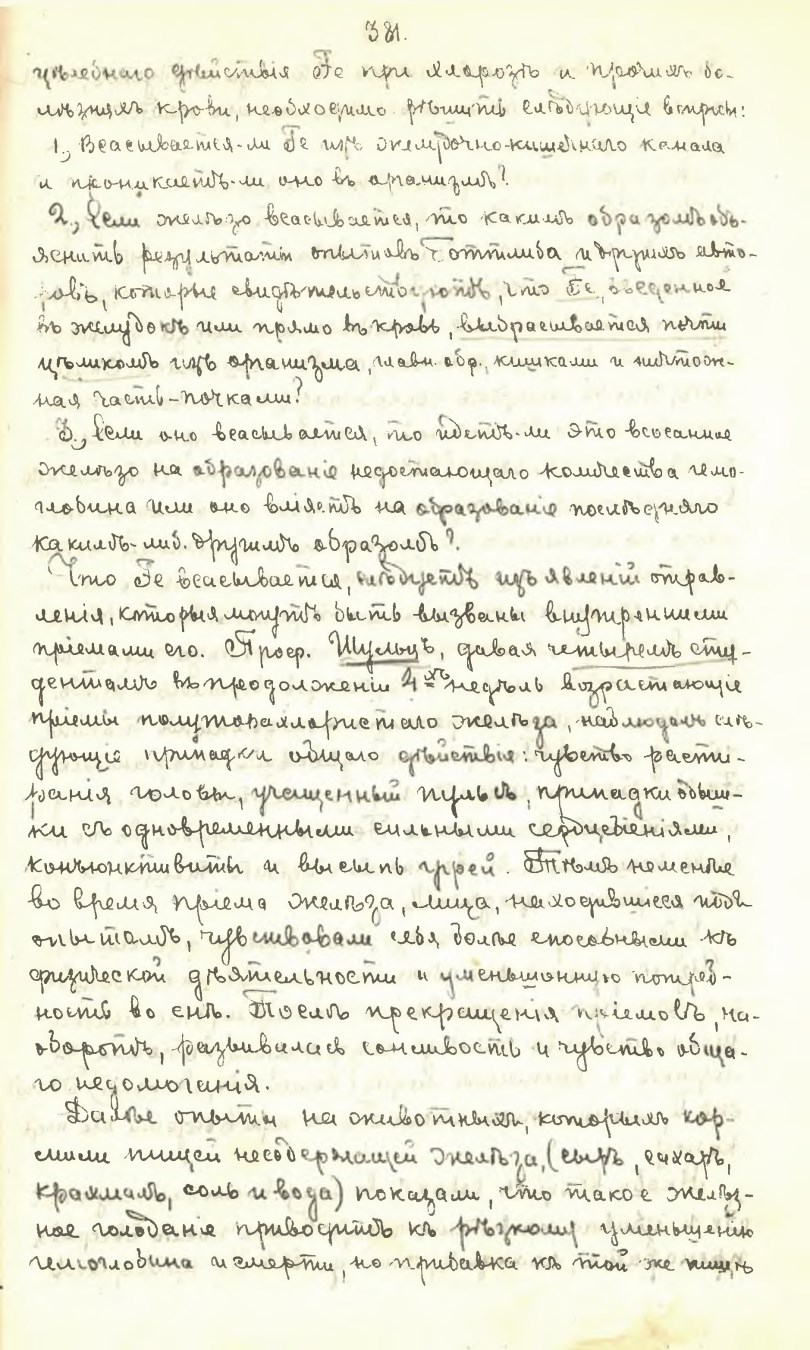 381.
цѣлебнаго дѣйствія Fe при хлорозѣ и прочихъ бо-
лѣзняхъ крови, необходимо рѣшить слѣдующіе вопросы:
1., Всасывается-ли Fe изъ желудочно-кишечнаго канала
и проникаетъ-ли оно въ организмъ?
2., Если желѣзо всасывается, то какимъ образомъ объ-
яснить результаты опытовъ Готтлиба и другихъ авто-
ровъ, которые свидѣтельствуютъ, что Fe, введенное
въ желудокъ или прямо въ кровь, выбрасывается почти
цѣликомъ изъ организма, главн. обр., кишками и ничтож-
ная часть-почками?
3., Если оно всасывается, то идетъ-ли это всосанное
желѣзо на образованіе недостающаго количества гемо-
глобина или оно вліяетъ на образованіе послѣдняго
какимъ-либ. другимъ образомъ?
Что Fe всасывается, слѣдуетъ изъ явленій отрав-
ленія, которыя могутъ быть вызваны внутренними
пріемами его. Проф. Шульцъ, давая четыремъ сту-
дентамъ въ продолженіи 4хъ недѣль возрастающіе
пріемы полуторахлористаго желѣза, наблюдалъ слѣ-
дующіе припадки общаго дѣйствія: чувство распи-
ранія головы, учащенный пульсъ, припадки одыш-
ки съ одновременными сильными сердцебіеніями,
конъюнктивиты и высыпь угрей. Тѣмъ неменѣе
во время пріема желѣза, лица, находившіеся подъ
опытомъ, чувствовали себя болѣе способными къ
физической дѣятельности и уменьшонную потреб-
ность во снѣ. Послѣ прекращенія пріемовъ, на-
оборотъ, развивалась сонливость и чувство обща-
го недомоганія.
Далѣе опыты на животныхъ, которыхъ кор-
мили пищей несодержащей желѣза, (сыръ, сахаръ,
крахмалъ, соль и вода) показали, что такое желѣз-
ное голоданіе приводитъ къ рѣзкому уменьшенію
гемоглобина и смерти, но прибавка къ той же пищѣ